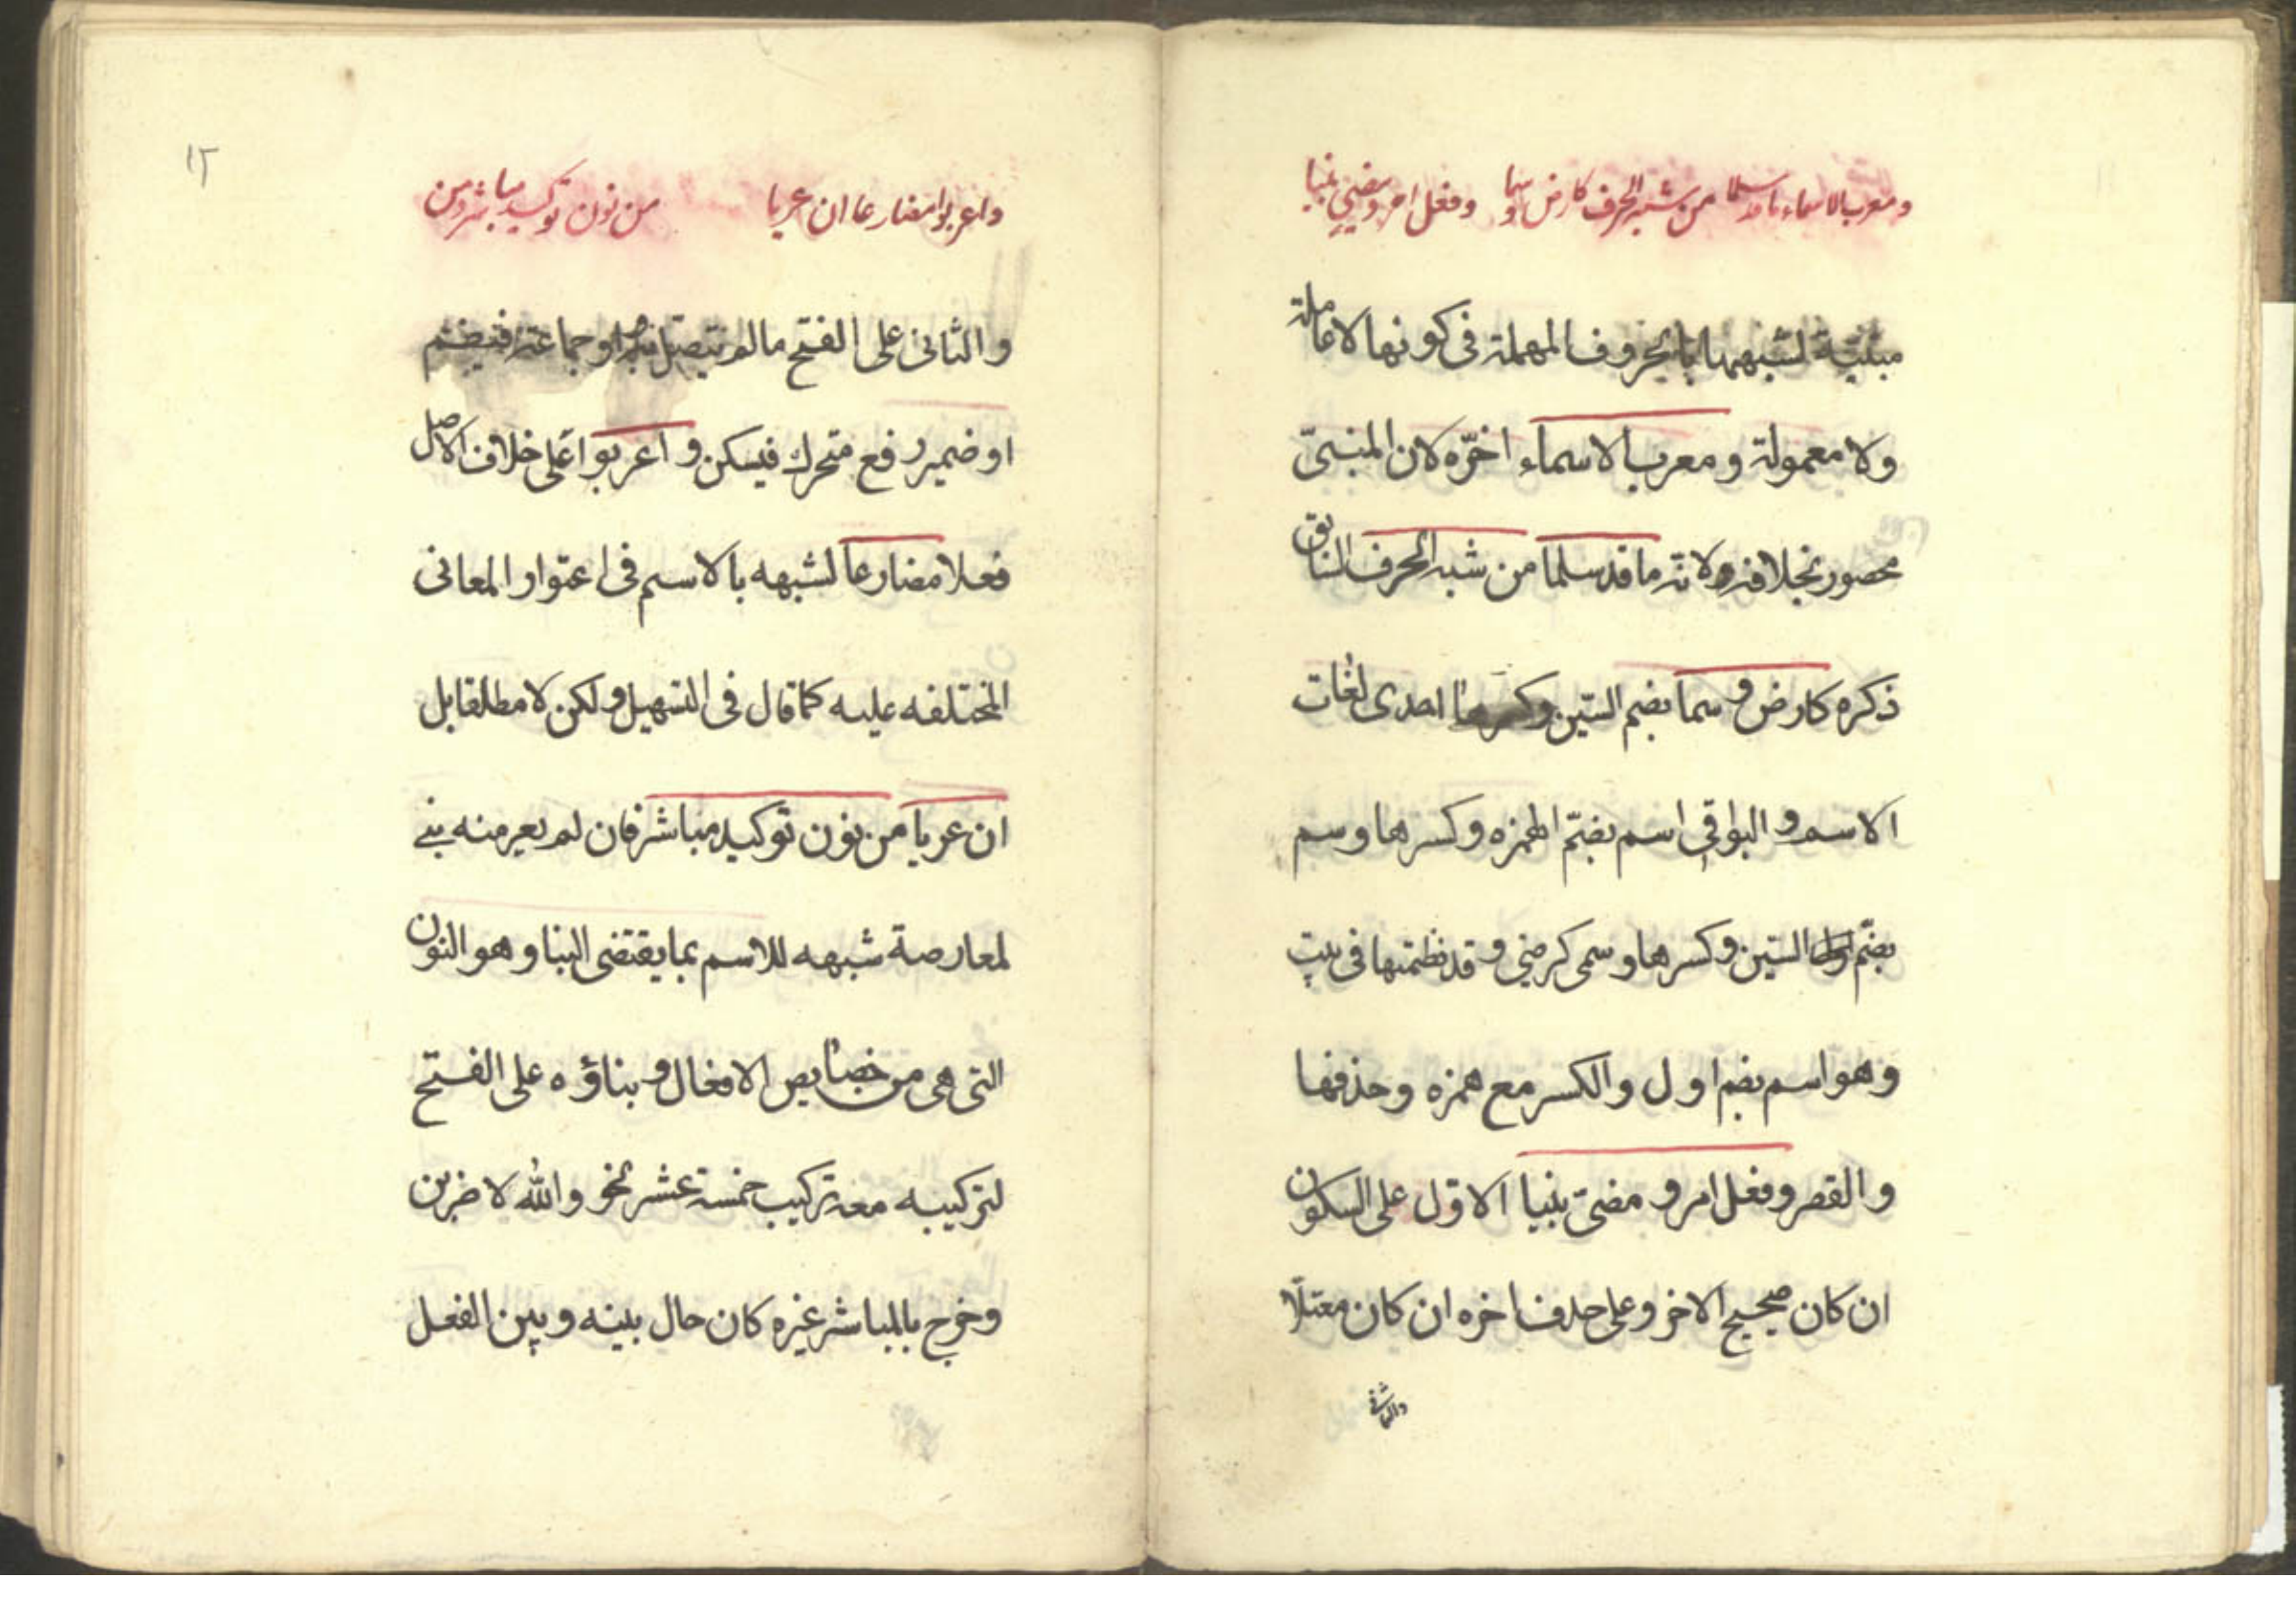 ومعرب الاسماء ما قد سلما من شبه الحرف كارض وسما وفعل امر ومضي بنيا
مبنيّة لشبهها بالحروف المهملة في كونها لا عاملة
ولا معمولة ومعرب الاسماء اخّره لان المبنيّ
محصور بخلافه ولانّه ما قد سلما من شبه الحرف السابق
ذكره كارض وسما بضم السّين وكسرها احدى لغات
الاسم والبواقي اسم بضمّ الهمزه وكسرها وسم
بضمّ السّين وكسرها وسمى كرضي وقد نظمتها في بيت
وهو اسم بضم اول والكسر مع همزه وحذفها
والقصر وفعل امر ومضيّ بنيا الاوّل على السكون
ان كان صحيح الاخر وعلى حذف اخره ان كان معتلّا
والثاني
١٢
واعربوا مضارعا ان عريا من نون توكيد مباشر ومن
والثاني على الفتح ما لم يتصل به واو جماعة فيضم
او ضمير رفع متحرك فيسكن واعربوا على خلاف الاصل
فعلا مضارعا لشبهه بالاسم في اعتوار المعاني
المختلفه عليه كما قال في التسهيل ولكن لا مطلقا بل
ان عريا من نون توكيد مباشر فان لم يعر منه بني
لمعارضة شبهه للاسم بما يقتضى البنا وهو النون
التى هى من خصايص الافعال وبناؤه على الفتح
لتركيبه معه تركيب خمسة عشر نحو والله لاضربن
وخرج بالمباشر غيره كان حال بينه وبين الفعل